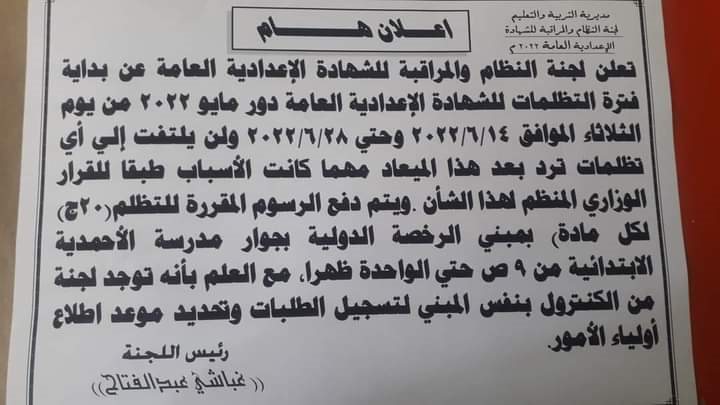 مديرية التربية والتعليم
لجنة النظام والمراقبة للشهادة
الإعدادية العامة ٢٠٢٢ م
اعلان هـــام
تعلن لجنة النظام والمراقبة للشهادة الإعدادية العامة عن بداية
فترة التظلمات للشهادة الإعدادية العامة دور مايو ٢٠٢٢ من يوم
الثلاثاء الموافق ٢٠٢٢/٦/١٤ وحتي ٢٠٢٢/٦/٢٨ ولن يلتفت إلي أي
تظلمات ترد بعد هذا الميعاد مهما كانت الأسباب طبقا للقرار
الوزاري المنظم لهذا الشأن .ويتم دفع الرسوم المقررة للتظلم(٢٠ج)
لكل مادة) بمبني الرخصة الدولية بجوار مدرسة الأحمدية
الابتدائية من ٩ ص حتي الواحدة ظهرا، مع العلم بأنه توجد لجنة
من الكنترول بنفس المبني لتسجيل الطلبات وتحديد موعد اطلاع
أولياء الأمور.
رئيس اللجنة
((غباشي عبدالفتاح))